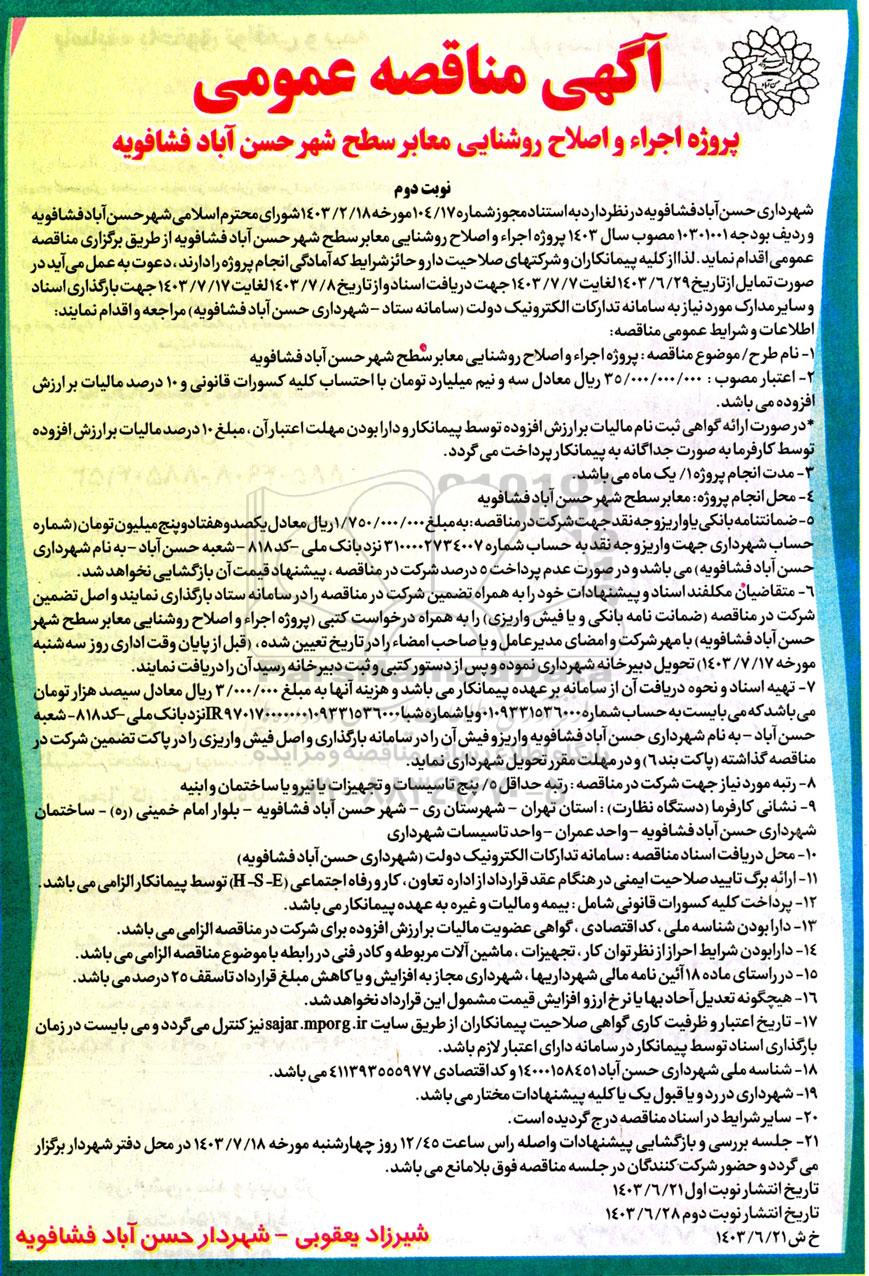 آگهی مناقصه عمومی
پروژه اجراء و اصلاح روشنایی معابر سطح شهر حسن آباد فشافویه
نوبت دوم
شهرداری حسن آباد فشافویه در نظر دارد به استناد مجوز شماره ۱۰۴/۱۷ مورخه ۱۴۰۳/۲/۱۸ شورای محترم اسلامی شهر حسن آباد فشافویه
و ردیف بودجه ۱۰۳۰۱۰۰۱ مصوب سال ۱۴۰۳ پروژه اجراء و اصلاح روشنایی معابر سطح شهر حسن آباد فشافویه از طریق برگزاری مناقصه
عمومی اقدام نماید. لذا از کلیه پیمانکاران و شرکتهای صلاحیت دار و حائز شرایط که آمادگی انجام پروژه را دارند، دعوت به عمل می آید در
صورت تمایل از تاریخ ۱۴۰۳/۶/۲۹ لغایت ۱۴۰۳/۷/۷ جهت دریافت اسناد و از تاریخ ۱۴۰۳/۷/۸ لغایت ۱۴۰۳/۷/۱۷ جهت بارگذاری اسناد
و سایر مدارک مورد نیاز به سامانه تدارکات الکترونیک دولت (سامانه ستاد - شهرداری حسن آباد فشافویه) مراجعه و اقدام نمایند:
اطلاعات و شرایط عمومی مناقصه:
۱- نام طرح/ موضوع مناقصه : پروژه اجراء و اصلاح روشنایی معابر سطح شهر حسن آباد فشافویه
۲- اعتبار مصوب : ۳۵/۰۰۰/۰۰۰/۰۰۰ ریال معادل سه و نیم میلیارد تومان با احتساب کلیه کسورات قانونی و ۱۰ درصد مالیات بر ارزش
افزوده می باشد.
*در صورت ارائه گواهی ثبت نام مالیات بر ارزش افزوده توسط پیمانکار و دارا بودن مهلت اعتبار آن، مبلغ ۱۰ درصد مالیات بر ارزش افزوده
توسط کارفرما به صورت جداگانه به پیمانکار پرداخت می گردد.
۳- مدت انجام پروژه ۱/ یک ماه می باشد.
۴- محل انجام پروژه: معابر سطح شهر حسن آباد فشافویه
۵- ضمانتنامه بانکی یا واریز وجه نقد جهت شرکت در مناقصه: به مبلغ ۱/۷۵۰/۰۰۰/۰۰۰ ریال معادل یکصد و هفتاد و پنج میلیون تومان (شماره
حساب شهرداری جهت واریز وجه نقد به حساب شماره ۳۱۰۰۰۰۲۷۳۴۰۰۷ نزد بانک ملی -کد ۸۱۸ - شعبه حسن آباد - به نام شهرداری
حسن آباد فشافویه) می باشد و در صورت عدم پرداخت ۵ درصد شرکت در مناقصه، پیشنهاد قیمت آن بازگشایی نخواهد شد.
۶- متقاضیان مکلفند اسناد و پیشنهادات خود را به همراه تضمین شرکت در مناقصه را در سامانه ستاد بارگذاری نمایند و اصل تضمین
شرکت در مناقصه (ضمانت نامه بانکی و یا فیش واریزی) را به همراه درخواست کتبی (پروژه اجراء و اصلاح روشنایی معابر سطح شهر
حسن آباد فشافویه) با مهر شرکت و امضای مدیرعامل و یا صاحب امضاء را در تاریخ تعیین شده، (قبل از پایان وقت اداری روز سه شنبه
مورخه ۱۴۰۳/۷/۱۷) تحویل دبیرخانه شهرداری نموده و پس از دستور کتبی و ثبت دبیرخانه رسید آن را دریافت نمایند.
۷- تهیه اسناد و نحوه دریافت آن از سامانه بر عهده پیمانکار می باشد و هزینه آنها به مبلغ ۳/۰۰۰/۰۰۰ ریال معادل سیصد هزار تومان
می باشد که می بایست به حساب شماره ۰۱۰۹۳۳۱۵۳۶۰۰۰ و یا شماره شبا IR۹۷۰۱۷۰۰۰۰۰۰۰۱۰۹۳۳۱۵۳۶۰۰۰ نزد بانک ملی -کد ۸۱۸- شعبه
حسن آباد - به نام شهرداری حسن آباد فشافویه واریز و فیش آن را در سامانه بارگذاری و اصل فیش واریزی را در پاکت تضمین شرکت در
مناقصه گذاشته (پاکت بند ۶) و در مهلت مقرر تحویل شهرداری نماید.
۸- رتبه مورد نیاز جهت شرکت در مناقصه : رتبه حداقل ۵/ پنج تاسیسات و تجهیزات یا نیرو یا ساختمان و ابنیه
۹- نشانی کارفرما (دستگاه نظارت) : استان تهران - شهرستان ری - شهر حسن آباد فشافویه - بلوار امام خمینی (ره) - ساختمان
شهرداری حسن آباد فشافویه - واحد عمران - واحد تاسیسات شهرداری
۱۰- محل دریافت اسناد مناقصه : سامانه تدارکات الکترونیک دولت (شهرداری حسن آباد فشافویه)
۱۱- ارائه برگ تایید صلاحیت ایمنی در هنگام عقد قرارداد از اداره تعاون، کار و رفاه اجتماعی (H-S-E) توسط پیمانکار الزامی می باشد.
۱۲- پرداخت کلیه کسورات قانونی شامل : بیمه و مالیات و غیره به عهده پیمانکار می باشد.
۱۳- دارا بودن شناسه ملی، کد اقتصادی، گواهی عضویت مالیات بر ارزش افزوده برای شرکت در مناقصه الزامی می باشد.
۱۴- دارا بودن شرایط احراز از نظر توان کار، تجهیزات، ماشین آلات مربوطه و کادر فنی در رابطه با موضوع مناقصه الزامی می باشد.
۱۵- در راستای ماده ۱۸ آئین نامه مالی شهرداریها، شهرداری مجاز به افزایش و یا کاهش مبلغ قرارداد تا سقف ۲۵ درصد می باشد.
۱۶- هیچگونه تعدیل آحاد بها یا نرخ ارز و افزایش قیمت مشمول این قرارداد نخواهد شد.
۱۷- تاریخ اعتبار و ظرفیت کاری گواهی صلاحیت پیمانکاران از طریق سایت sajar.mporg.ir نیز کنترل می گردد و می بایست در زمان
بارگذاری اسناد توسط پیمانکار در سامانه دارای اعتبار لازم باشد.
۱۸- شناسه ملی شهرداری حسن آباد ۱۴۰۰۰۱۵۸۴۵۱ و کد اقتصادی ۴۱۱۳۹۳۵۵۵۹۷۷ می باشد.
۱۹- شهرداری در رد و یا قبول یک یا کلیه پیشنهادات مختار می باشد.
۲۰- سایر شرایط در اسناد مناقصه درج گردیده است.
۲۱- جلسه بررسی و بازگشایی پیشنهادات واصله راس ساعت ۱۲/۴۵ روز چهارشنبه مورخه ۱۴۰۳/۷/۱۸ در محل دفتر شهردار برگزار
می گردد و حضور شرکت کنندگان در جلسه مناقصه فوق بلامانع می باشد.
تاریخ انتشار نوبت اول ۱۴۰۳/۶/۲۱
تاریخ انتشار نوبت دوم ۱۴۰۳/۶/۲۸
خ ش ۱۴۰۳/۶/۲۱
شیرزاد یعقوبی - شهردار حسن آباد فشافویه